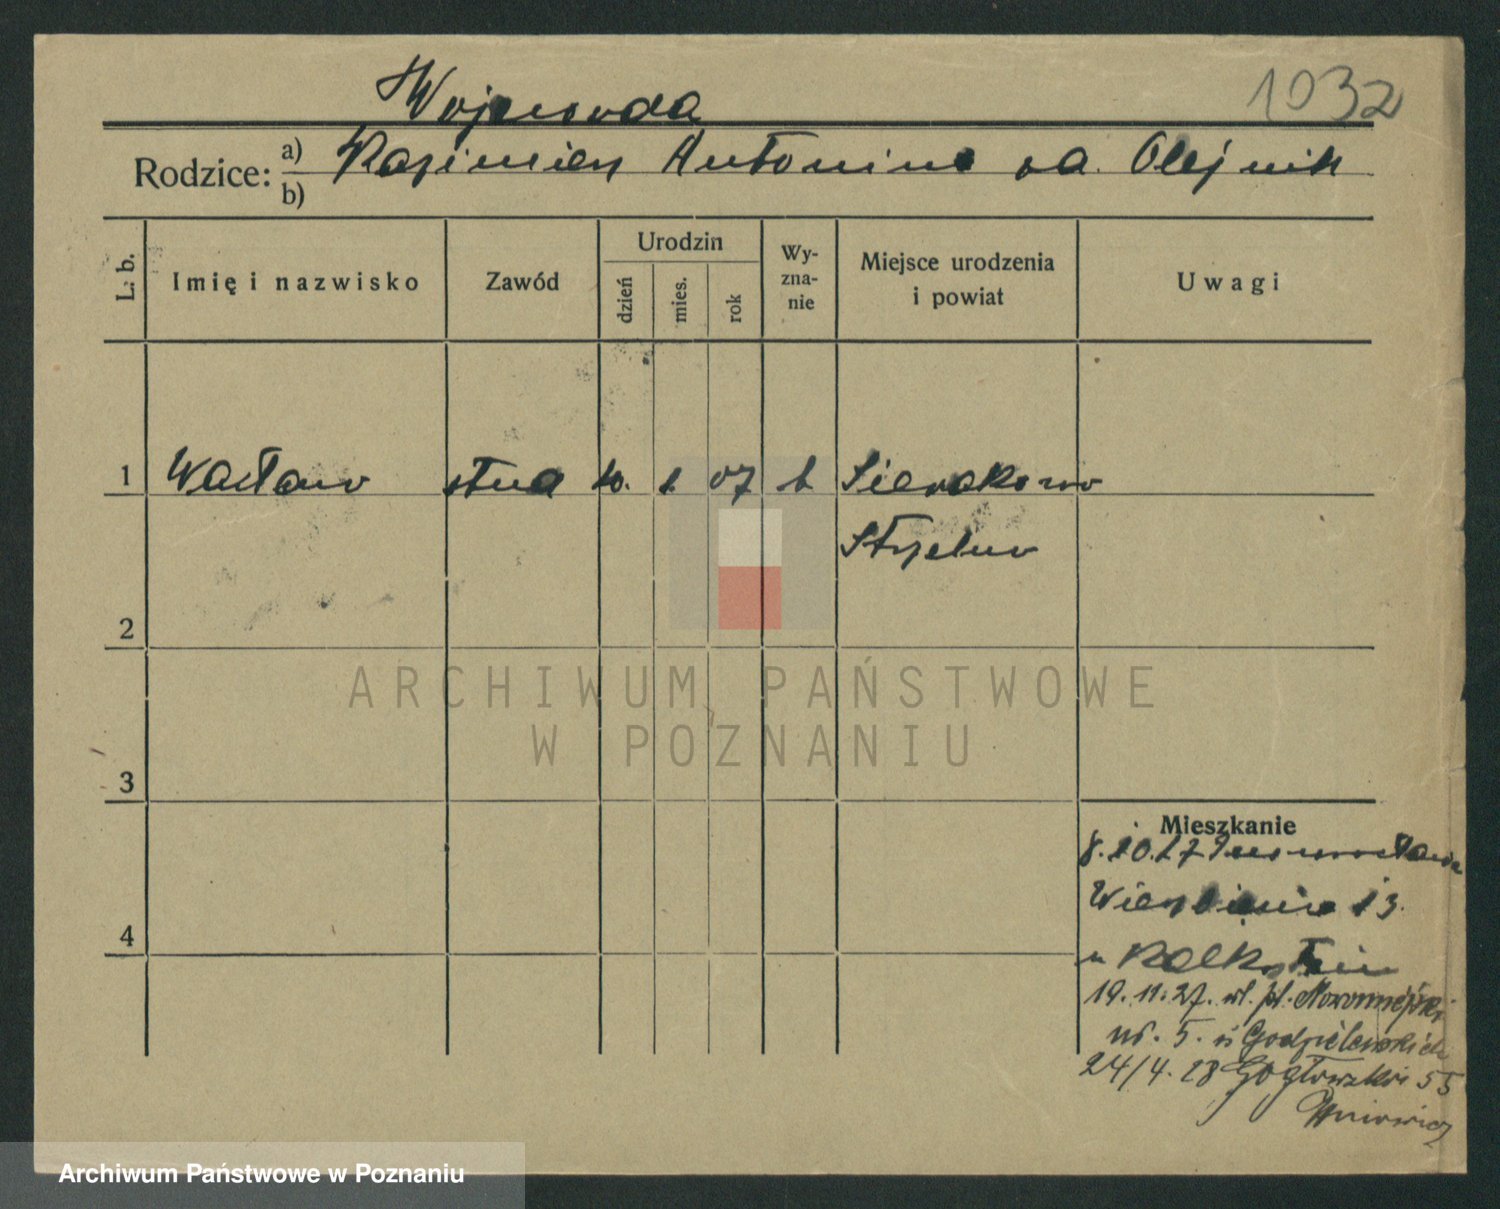 1032
Wojewoda
Rodzice: a) Kazimierz Antonina za. Olejnik
b)
L. b.
Imię i nazwisko
Zawód
Urodzin
dzień
mies.
rok
Wy-
zna-
nie
Miejsce urodzenia
i powiat
Uwagi
1 Wacław stud 10. 1 07 k Sierakowo
Strzelno
2
3
4
Mieszkanie
8.10.27 Inowrocława
13.
u
19.11.27. pl. Nowomiejski
nr. 5. u Godzielewskich
24/4.28 55
ARCHIWUM PAŃSTWOWE
W POZNANIU
Archiwum Państwowe w Poznaniu